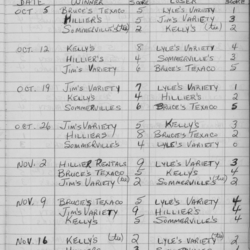 DATE WINNER SCORE LOSER SCORE
OCT. 5 BRUCE'S TEXACO 5 LYLE'S VARIETY
HILLIER'S 5 JIM'S VARIETY
SOMMERVILLE'S (tie) 2 KELLY'S (tie) 2
OCT. 12 KELLY'S 8 LYLE'S VARIETY
HILLIER'S 4 SOMMERVILLE'S
JIM'S VARIETY 6 BRUCE'S TEXACO 5
OCT. 19 JIM'S VARIETY 7 LYLE'S VARIETY 2
KELLY'S 4 HILLIER'S
SOMMERVILLE'S 6 BRUCE'S TEXACO 5
OCT. 26 JIM'S VARIETY 5 KELLY'S 3
HILLIERS 8 BRUCE'S TEXACO 2
SOMMERVILLE'S 4 LYLE'S VARIETY 0
NOV. 2 HILLIER RENTALS 9 LYLE'S VARIETY 3
BRUCE'S TEXACO 5 KELLY'S 4
JIM'S VARIETY (tie) 2 SOMMERVILLE'S (tie) 2
NOV. 9 BRUCE'S TEXACO 5 LYLE'S VARIETY 4
JIM'S VARIETY 9 HILLIER'S 4
KELLY'S 5 SOMMERVILLE'S 2
NOV. 16 KELLY'S (tie) 2 LYLE'S VARIETY (tie) 2